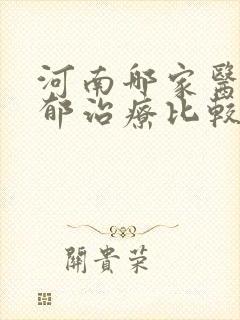 河南哪家醫
郁治療比較
關貴榮